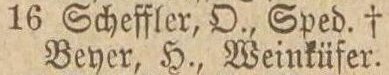 16 Scheffler, O., Sped. †
Beyer, H., Weinküfer.